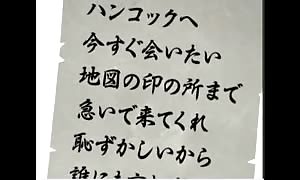 ハンコックへ
今すぐ会いたい
地図の印の所まで
急いで来てくれ
恥ずかしいから
誰にも